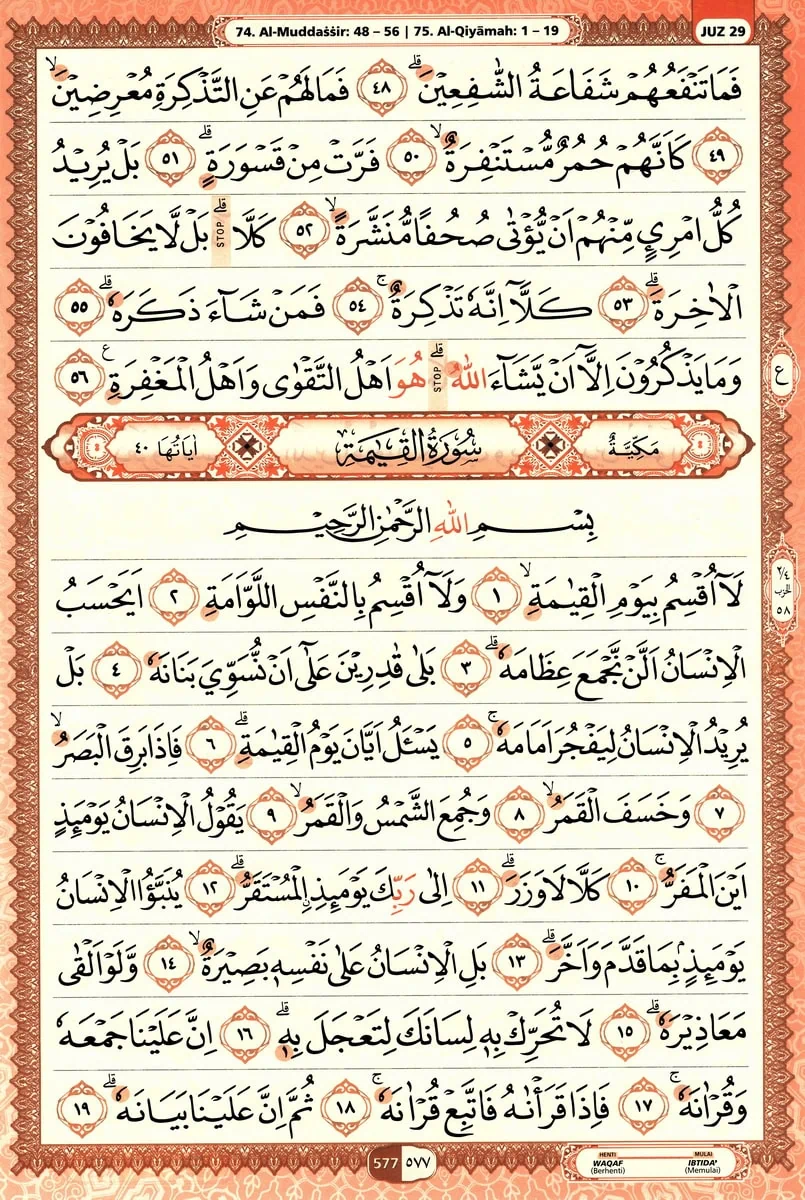 74. Al-Muddaṡṡir: 48 – 56 | 75. Al-Qiyāmah: 1 – 19
JUZ 29
فَمَا تَنْفَعُهُمْ شَفَاعَةُ الشّٰفِعِيْنَۗ ٤٨ فَمَا لَهُمْ عَنِ التَّذْكِرَةِ مُعْرِضِيْنَۙ
٤٩ كَاَنَّهُمْ حُمُرٌ مُّسْتَنْفِرَةٌۙ ٥٠ فَرَّتْ مِنْ قَسْوَرَةٍۗ ٥١ بَلْ يُرِيْدُ
كُلُّ امْرِئٍ مِّنْهُمْ اَنْ يُّؤْتٰى صُحُفًا مُّنَشَّرَةًۙ ٥٢ كَلَّاۗ STOP بَلْ لَّا يَخَافُوْنَ
الْاٰخِرَةَۗ ٥٣ كَلَّآ اِنَّهٗ تَذْكِرَةٌۚ ٥٤ فَمَنْ شَاۤءَ ذَكَرَهٗۗ ٥٥
وَمَا يَذْكُرُوْنَ اِلَّآ اَنْ يَّشَاۤءَ اللّٰهُۗ STOP هُوَ اَهْلُ التَّقْوٰى وَاَهْلُ الْمَغْفِرَةِ ࣖ ٥٦
ع
مَكِّيَّةٌ سُوْرَةُ الْقِيٰمَةِ اٰيَاتُهَا ٤٠
بِسْمِ اللّٰهِ الرَّحْمٰنِ الرَّحِيْمِ
لَآ اُقْسِمُ بِيَوْمِ الْقِيٰمَةِۙ ١ وَلَآ اُقْسِمُ بِالنَّفْسِ اللَّوَّامَةِ ٢ اَيَحْسَبُ
٢/٤ الحزب ٥٨
الْاِنْسَانُ اَلَّنْ نَّجْمَعَ عِظَامَهٗۗ ٣ بَلٰى قٰدِرِيْنَ عَلٰٓى اَنْ نُّسَوِّيَ بَنَانَهٗ ٤ بَلْ
يُرِيْدُ الْاِنْسَانُ لِيَفْجُرَ اَمَامَهٗۚ ٥ يَسْـَٔلُ اَيَّانَ يَوْمُ الْقِيٰمَةِۗ ٦ فَاِذَا بَرِقَ الْبَصَرُۙ
٧ وَخَسَفَ الْقَمَرُۙ ٨ وَجُمِعَ الشَّمْسُ وَالْقَمَرُۙ ٩ يَقُوْلُ الْاِنْسَانُ يَوْمَىِٕذٍ
اَيْنَ الْمَفَرُّۚ ١٠ كَلَّا لَا وَزَرَۗ ١١ اِلٰى رَبِّكَ يَوْمَىِٕذِ ِۨالْمُسْتَقَرُّۗ ١٢ يُنَبَّؤُا الْاِنْسَانُ
يَوْمَىِٕذٍۢ بِمَا قَدَّمَ وَاَخَّرَۗ ١٣ بَلِ الْاِنْسَانُ عَلٰى نَفْسِهٖ بَصِيْرَةٌۙ ١٤ وَّلَوْ اَلْقٰى
مَعَاذِيْرَهٗۗ ١٥ لَا تُحَرِّكْ بِهٖ لِسَانَكَ لِتَعْجَلَ بِهٖۗ ١٦ اِنَّ عَلَيْنَا جَمْعَهٗ
وَقُرْاٰنَهٗۚ ١٧ فَاِذَا قَرَأْنٰهُ فَاتَّبِعْ قُرْاٰنَهٗۚ ١٨ ثُمَّ اِنَّ عَلَيْنَا بَيَانَهٗۗ ١٩
577 ٥٧٧
HENTI WAQAF (Berhenti)
MULAI IBTIDA' (Memulai)